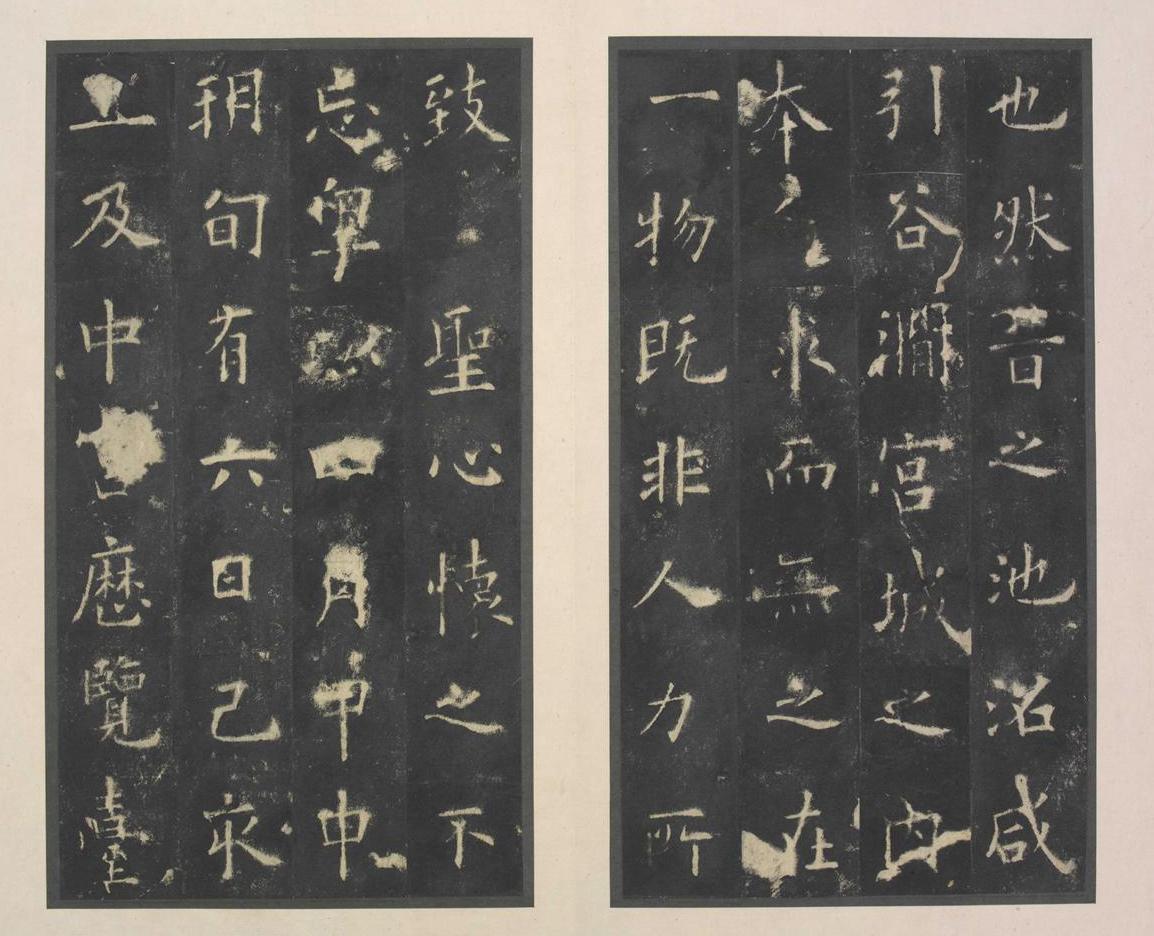 也然昔之池沼咸
引谷澗宮城之內
本乏求而無之在
一物既非人力所
致聖心懷之不
忘粵以四月甲申
朔旬有六日己亥
上及中歷覽臺